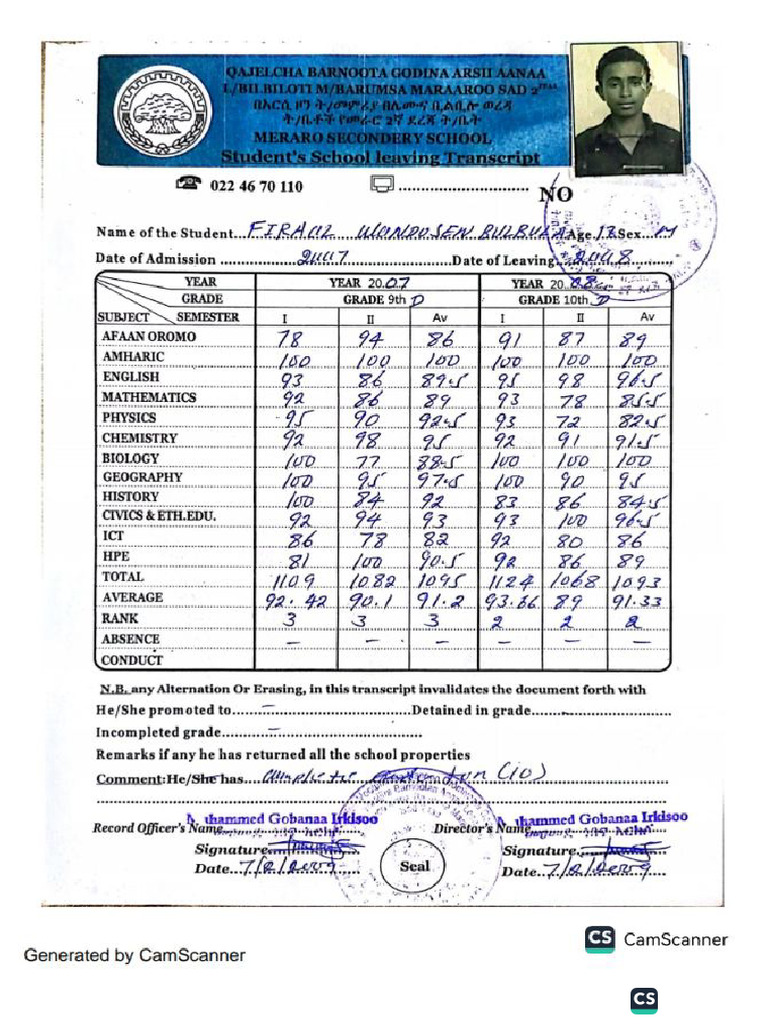 QAJELCHA BARNOOTA GODINA ARSII AANAA
L/BILBILOTI M/BARUMSA MARAAROO SAD 2
በአርሲ ዞን ት/መምሪያ በሊሙና ቢልቢሎ ወረዳ
ት/ቤቶች የመራሮ 2ኛ ደረጃ ት/ቤት
MERARO SECONDERY SCHOOL
Student's School leaving Transcript
022 46 70 110
NO
Name of the Student WONDOSEN Age 18 Sex M
Date of Admission 2007 Date of Leaving 2008
YEAR YEAR 20.07 YEAR 20.08
GRADE GRADE 9th D GRADE 10th D
SUBJECT SEMESTER I II Av I II Av
AFAAN OROMO 78 94 86 91 87 89
AMHARIC 100 100 100 100 100 100
ENGLISH 93 86 89.5 95 98 96.5
MATHEMATICS 92 86 89 93 78 85.5
PHYSICS 95 90 92.5 93 72 82.5
CHEMISTRY 92 98 95 92 91 91.5
BIOLOGY 100 77 88.5 100 100 100
GEOGRAPHY 100 95 97.5 100 90 95
HISTORY 100 84 92 83 86 84.5
CIVICS & ETH.EDU. 92 94 93 93 100 96.5
ICT 86 78 82 92 80 86
HPE 81 100 90.5 92 86 89
TOTAL 1109 1082 1095 1124 1068 1093
AVERAGE 92.42 90.1 91.2 93.66 89 91.33
RANK 3 3 3 2 2 2
ABSENCE – – – – – –
CONDUCT
N.B. any Alternation Or Erasing, in this transcript invalidates the document forth with
He/She promoted to – Detained in grade
Incompleted grade –
Remarks if any he has returned all the school properties
Comment:He/She has (10)
Gobanaa Irkisoo Gobanaa Irkisoo
Record Officer's Name Director's Name
Signature Signature
Date 7/2/2009 Date 7/2/2009
Seal
CS CamScanner
Generated by CamScanner
CS